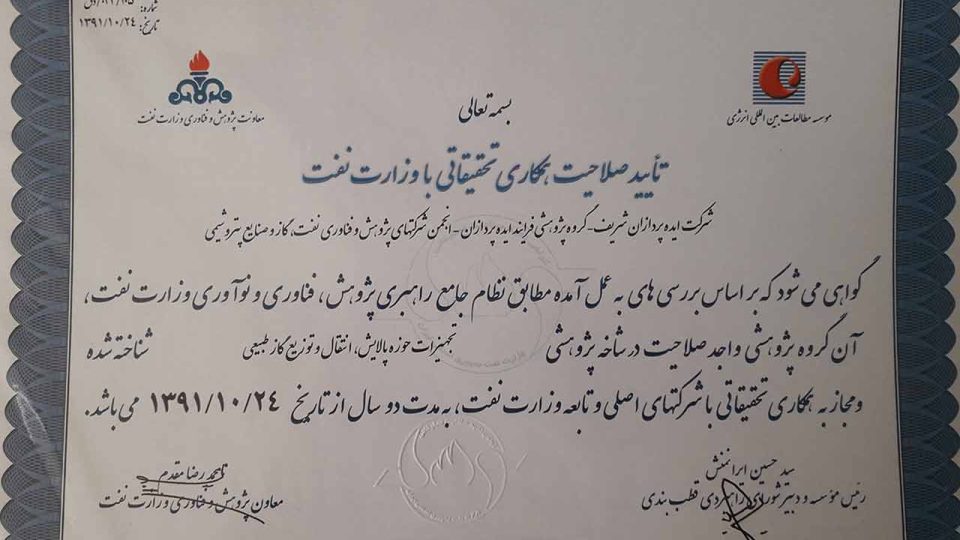 شماره:
تاریخ: ۱۳۹۱/۱۰/۲۴
معاونت پژوهش و فناوری وزارت نفت
موسسه مطالعات بین المللی انرژی
بسمه تعالی
تأیید صلاحیت همکاری تحقیقاتی با وزارت نفت
شرکت ایده پردازان شریف - گروه پژوهشی فرایند ایده پردازان - انجمن شرکتهای پژوهش و فناوری نفت، گاز و صنایع پتروشیمی
گواهی می شود که بر اساس بررسی های به عمل آمده مطابق نظام جامع راهبری پژوهش، فناوری و نوآوری وزارت نفت،
آن گروه پژوهشی واجد صلاحیت در شاخه پژوهشی تجهیزات حوزه پالایش، انتقال و توزیع گاز طبیعی شناخته شده
و مجاز به همکاری تحقیقاتی با شرکتهای اصلی و تابعه وزارت نفت، به مدت دو سال از تاریخ ۱۳۹۱/۱۰/۲۴ می باشد.
سید حسین ایرانمنش
رئیس مؤسسه و دبیر شورای راهبردی قطب بندی
محمدرضا مقدم
معاون پژوهش و فناوری وزارت نفت